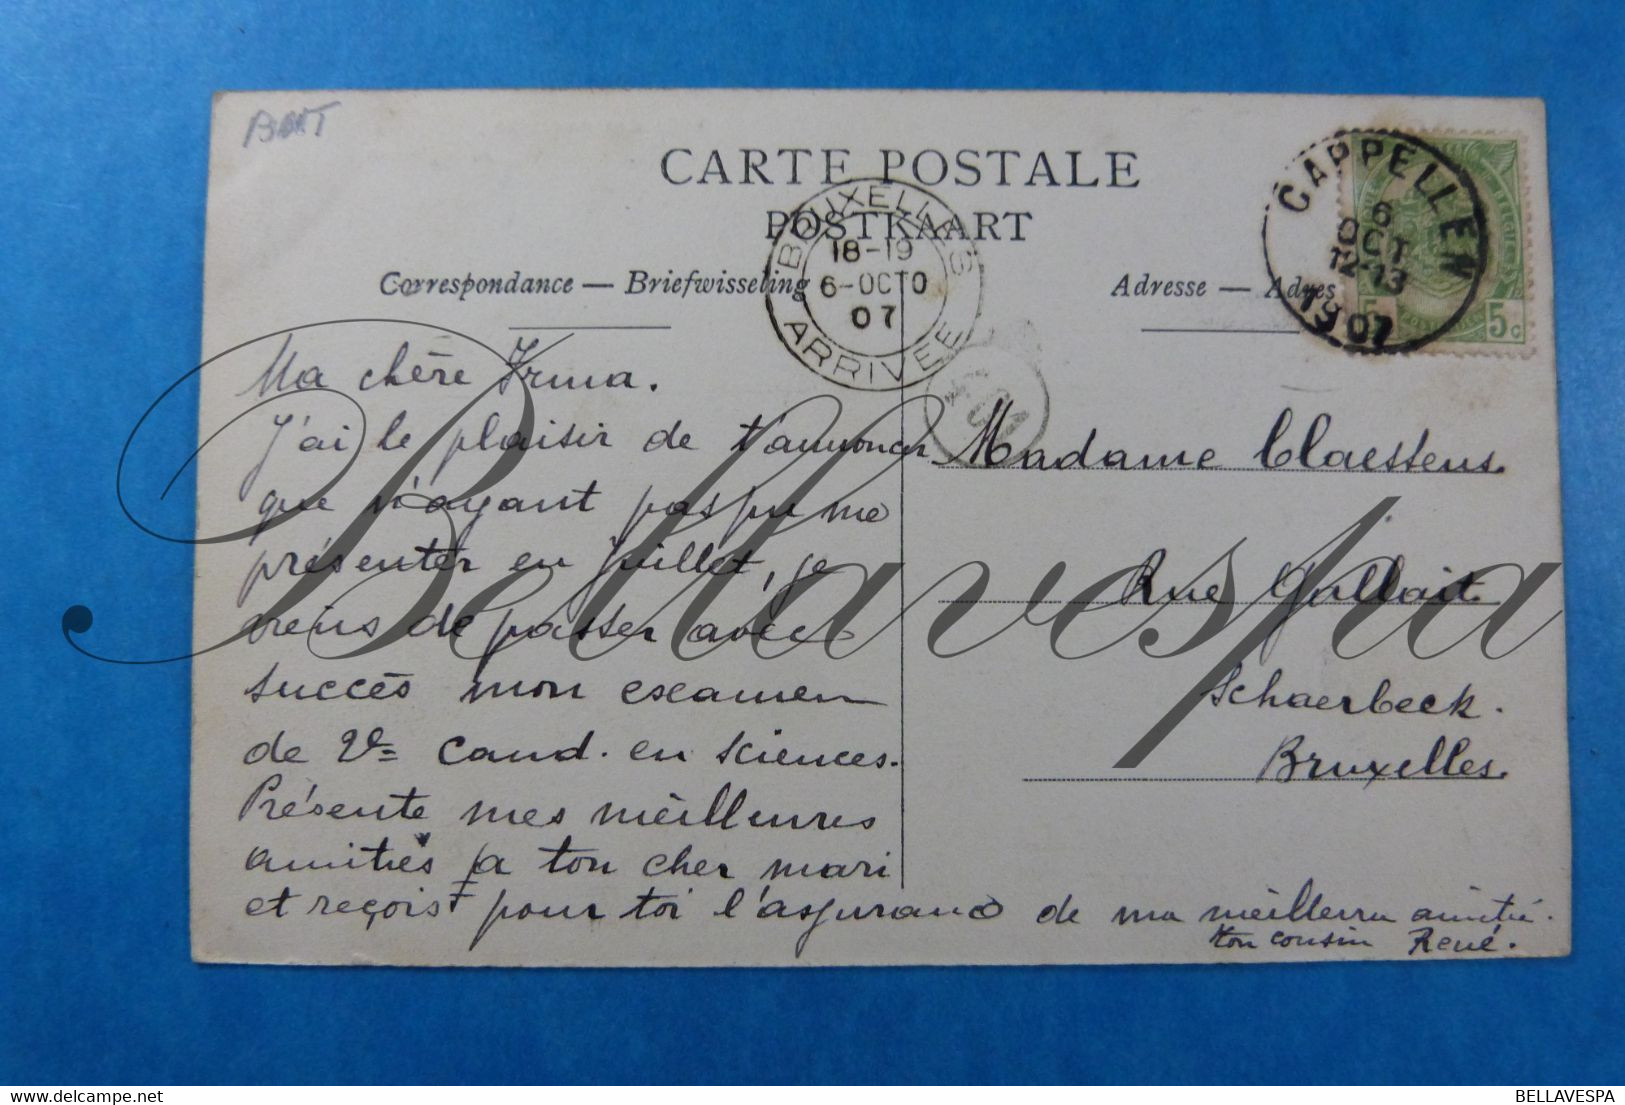 CARTE POSTALE
POSTKAART
Correspondance — Briefwisseling
Adresse — Adres
BRUXELLES
18-19
6-OCTO
07
ARRIVÉE
CAPPELLEN
6
OCT
12-13
1907
5c
Ma chère Irma.
J'ai le plaisir de t'annoncer
que n'ayant pas pu me
présenter en juillet, je
viens de passer avec
succès mon examen
de 2e cand. en sciences.
Présente mes meilleures
amitiés à ton cher mari
et reçois pour toi l'assurance de ma meilleure amitié.
ton cousin René.
Madame Claessens
Rue Gallait
Schaerbeek.
Bruxelles.
Bellavespa
BELLAVESPA